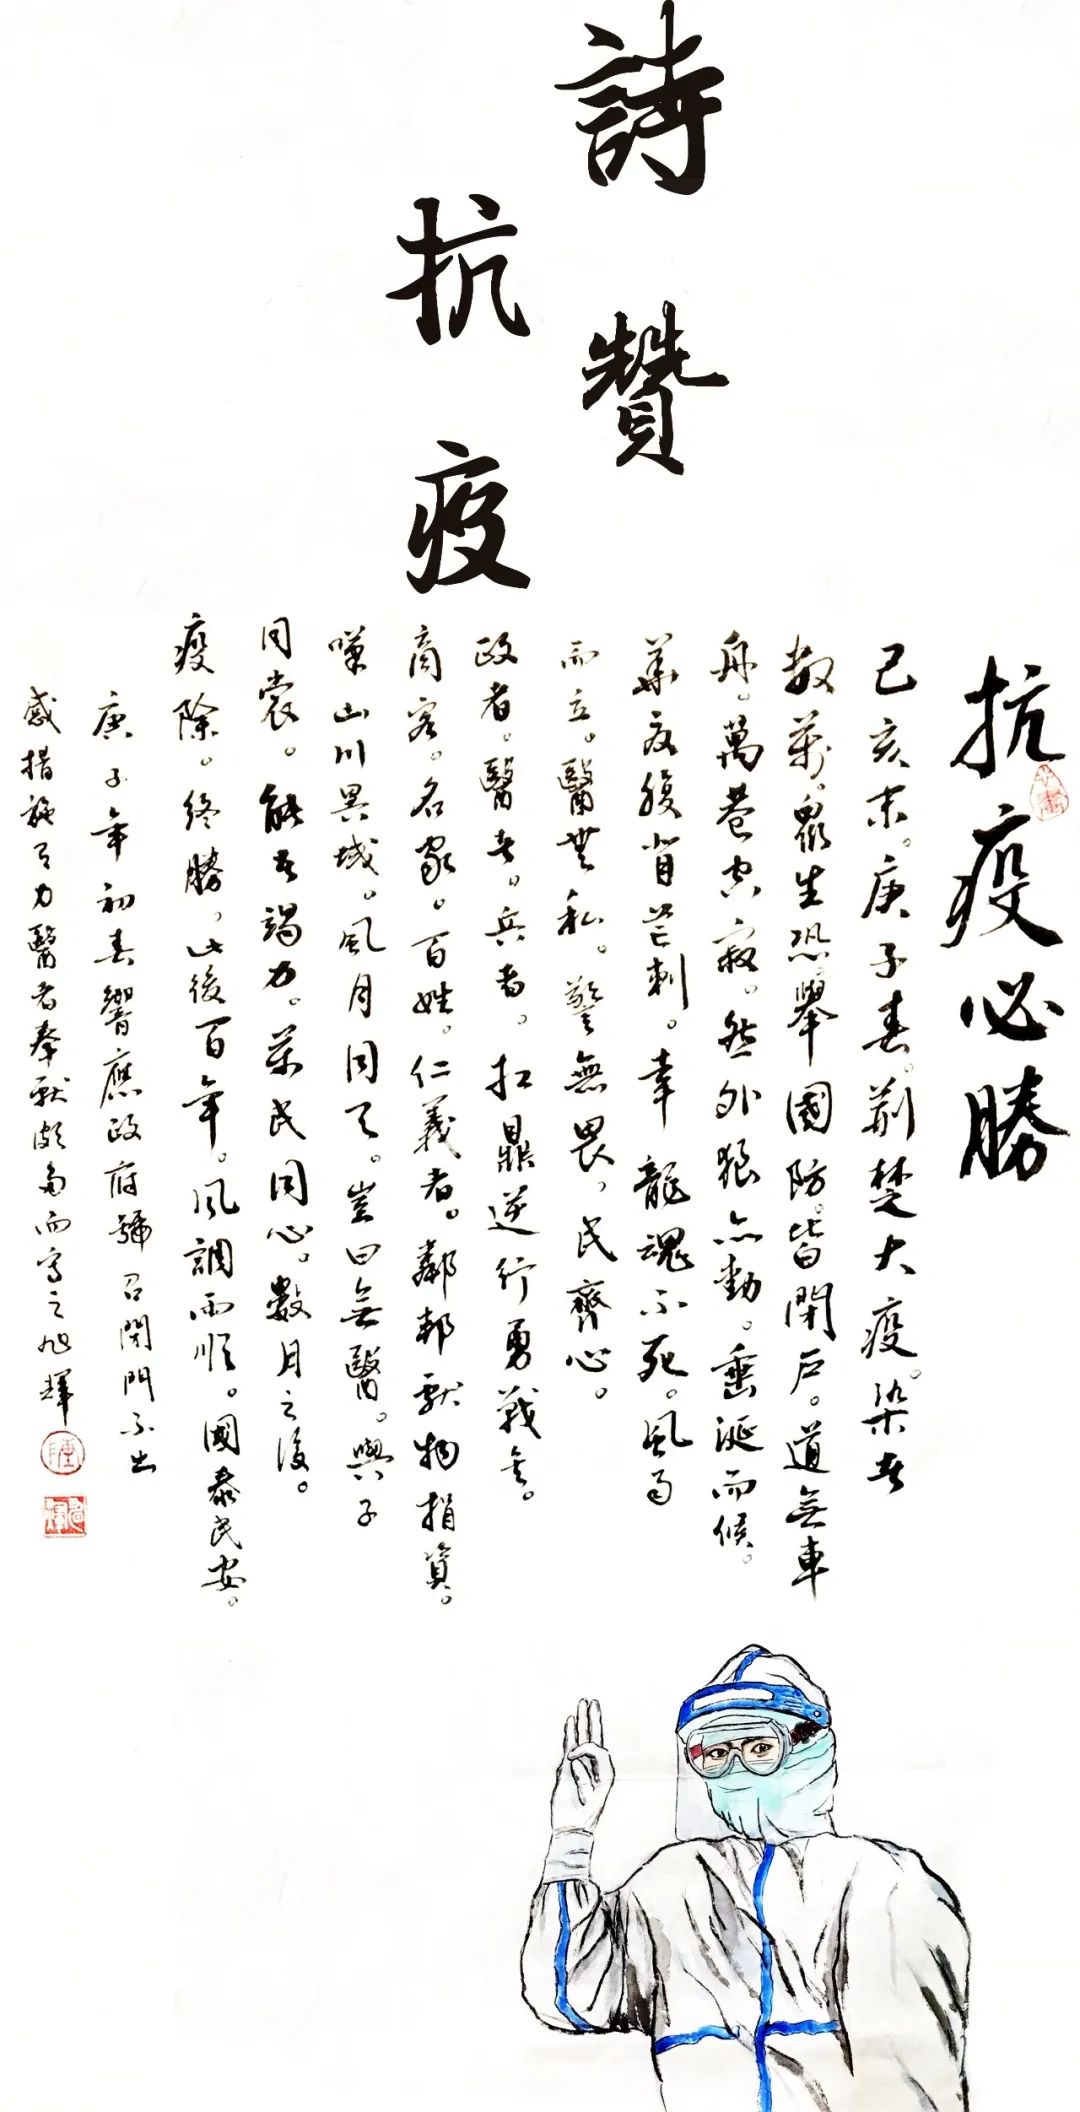 詩贊
抗疫
抗疫必勝
己亥末。庚子春。荆楚大疫。染者
数萬，衆生恐，舉國防。皆閉户。道無車
舟。萬巷空寂。然外狼亦動。垂涎而候。
華夏腹背芒刺。幸龍魂不死。風雨
而立。醫無私。警無畏，民齊心。
政者。醫者。兵者。扛鼎逆行勇戰矣。
商客。名家。百姓。仁義者。鄰邦獻物捐資。
嘆山川異域。風月同天。豈曰無醫。與子
同裳。能者竭力。萬民同心。數月之後。
疫除。終勝，此後百年。風調雨順。國泰民安。
庚子年初春響應政府號召閉門不出
感措施有力醫者奉獻頗多而寫之旭輝